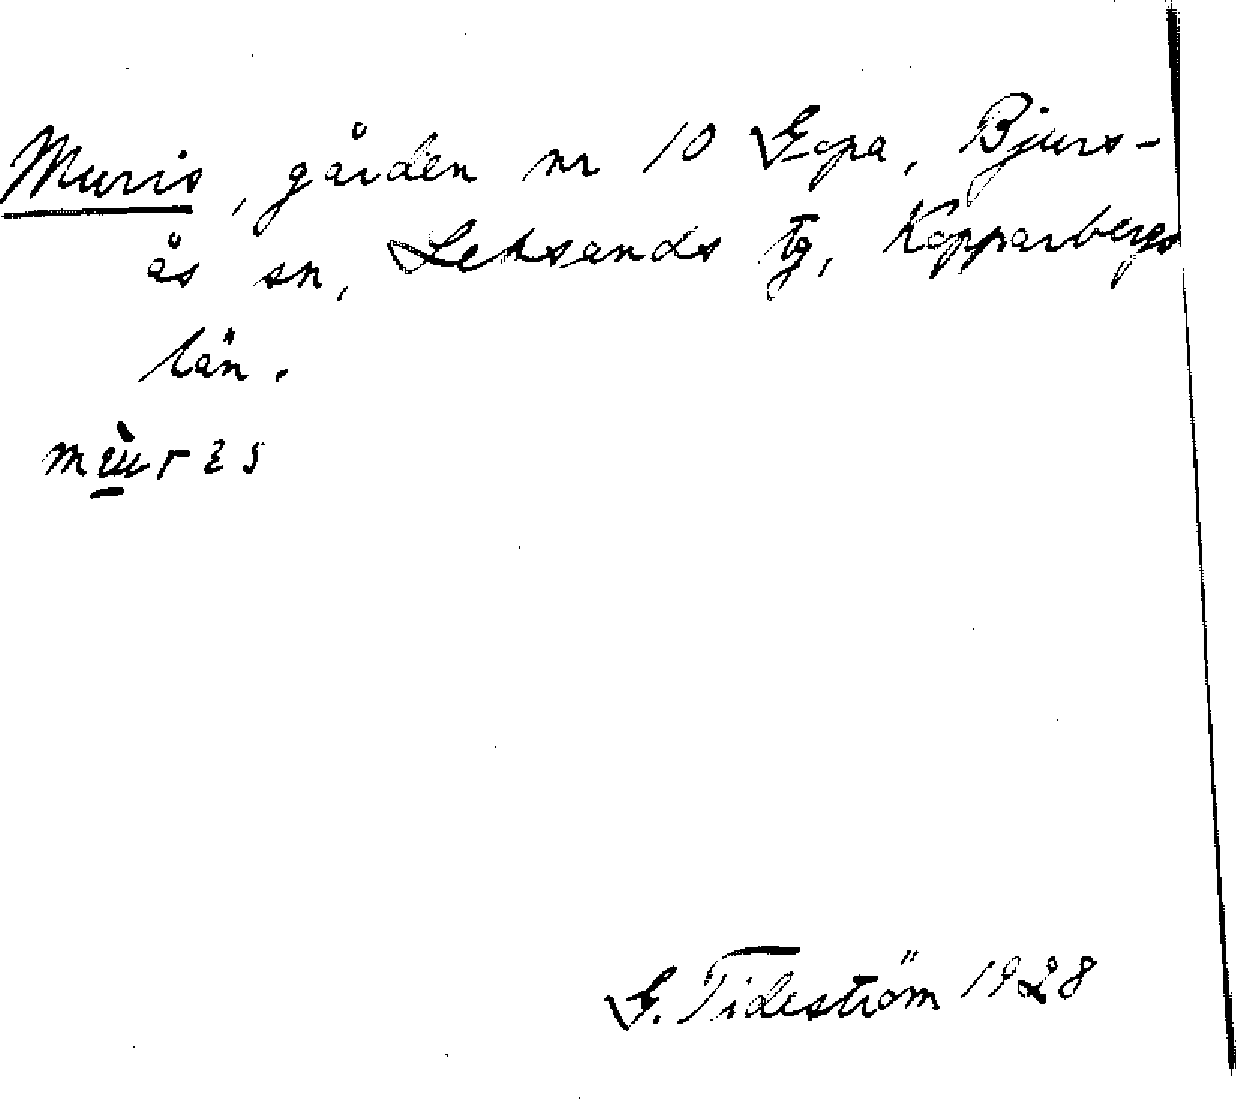 Muris, gården nr 10 Gopa, Bjurs-
ås sn, Leksands tg, Kopparbergs
län.
G. Tideström 1928